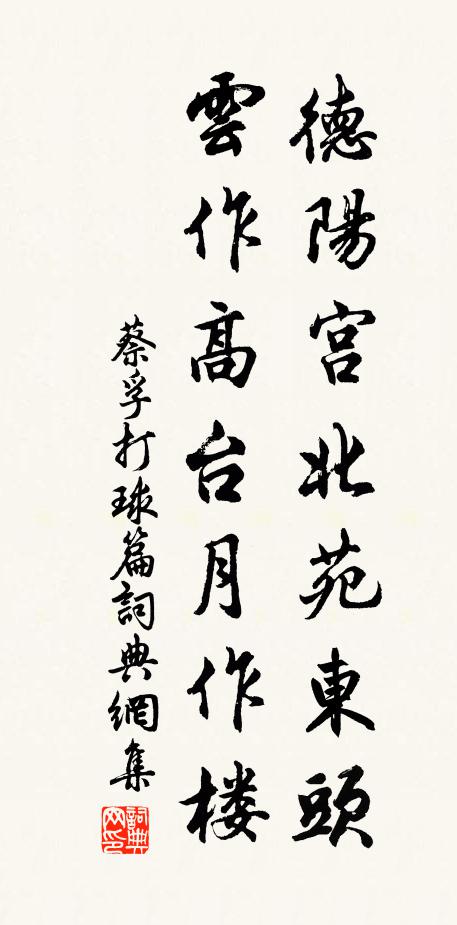 德陽宮北苑東頭
雲作高台月作楼
蔡孚打球篇詞典網集
詞典网印